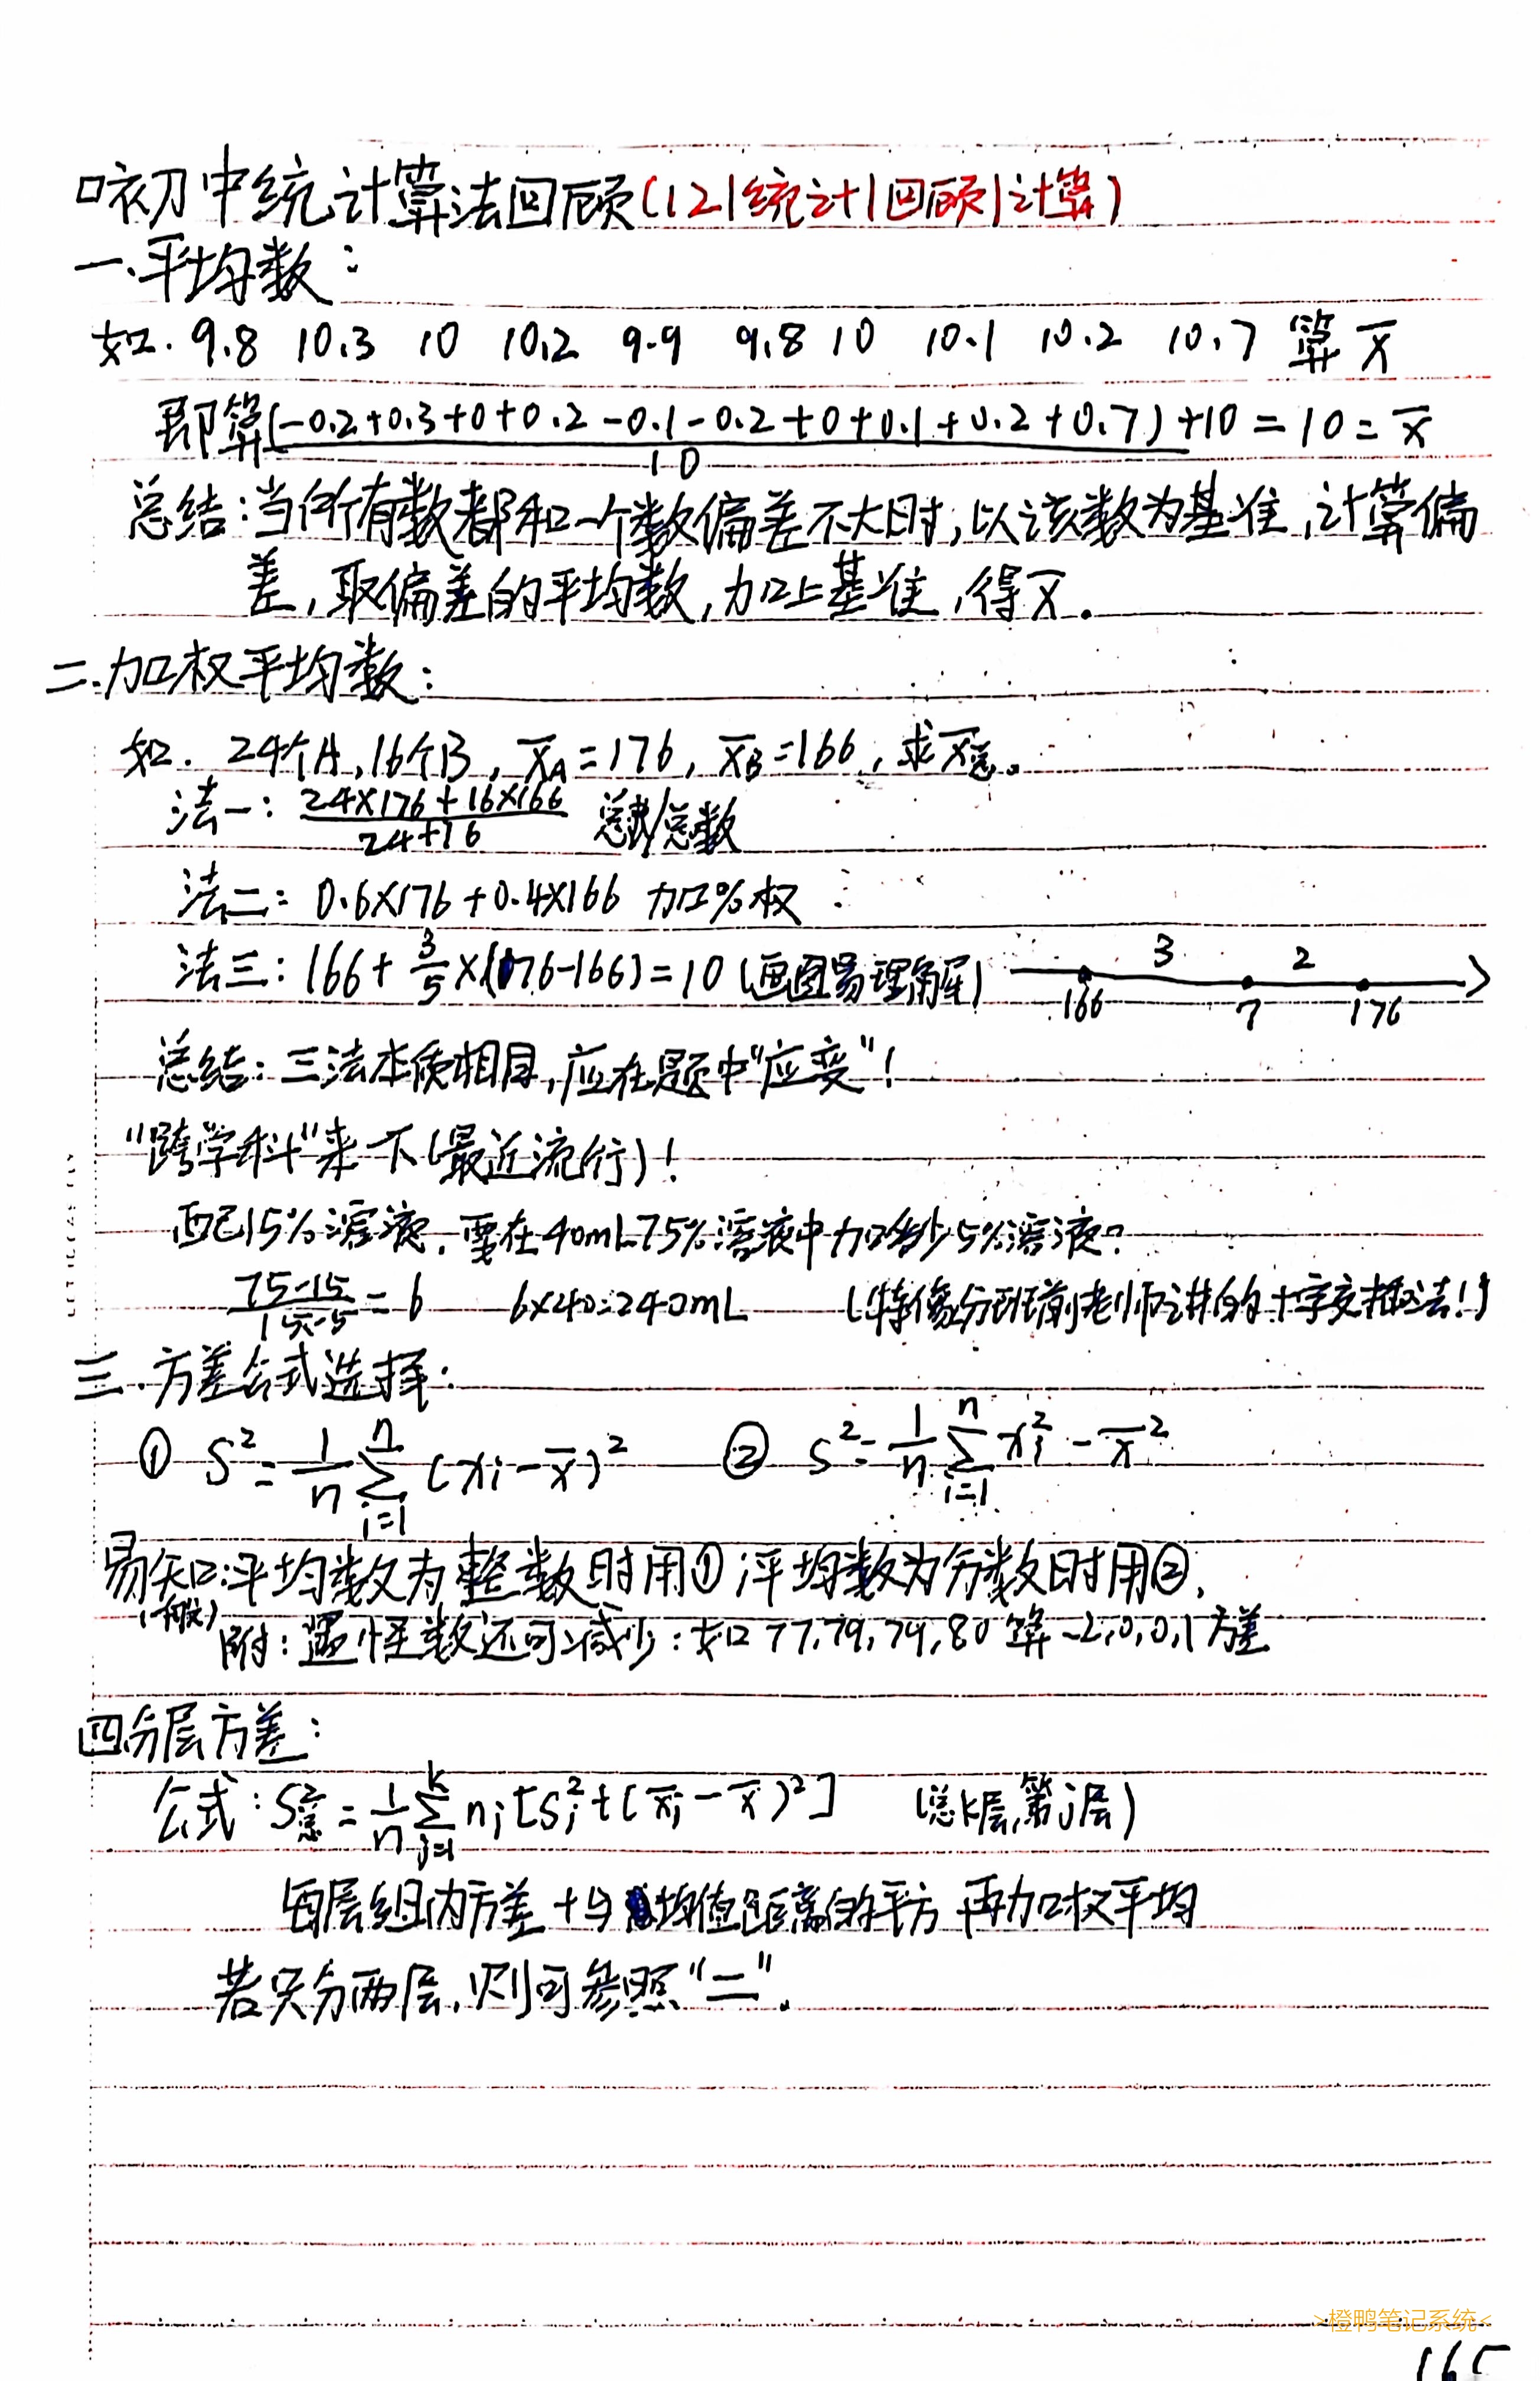 口初中统计算法回顾(121统计|回顾|计算)
一.平均数:
如. 9.8 10.3 10 10.2 9.9 9.8 10 10.1 10.2 10.7 算 x̄
即算(-0.2+0.3+0+0.2-0.1-0.2+0+0.1+0.2+0.7)/10 +10=10=x̄
总结:当所有数都和一个数偏差不大时,以该数为基准,计算偏
差,取偏差的平均数,加上基准,得x̄.
二.加权平均数:
如. 24个A,16个B, x̄A=176, x̄B=166, 求x̄总。
法一: (24×176+16×166)/(24+16) 总/总数
法二: 0.6×176+0.4×166 加%权
法三: 166+3/5×(176-166)=10 (画图易理解)
3 2
166 ? 176
总结: 三法本质相同,应在题中“应变”!
“跨学科”来一下(最近流行)!
配15%溶液,要在40mL75%溶液中加多少5%溶液?
(75-15)/(15-5)=6 6×40=240mL (特像分班前老师讲的十字交叉法!)
三.方差公式选择:
① S²=1/n ∑ⁿᵢ₌₁ (xᵢ-x̄)² ② S²=1/n ∑ⁿᵢ₌₁ xᵢ²-x̄²
易知:平均数为整数时用①;平均数为分数时用②.
(一般)
附: 遇怪数还可减少: 如77,79,79,80算-2,0,0,1方差
四.分层方差:
公式: S²总=1/n ∑ᵏⱼ₌₁ nⱼ[Sⱼ²+(x̄ⱼ-x̄)²] (总k层,第j层)
每层组内方差+与均值距离的平方 再加权平均
若只分两层,则可参照“二”.
>橙鸭笔记系统<
165